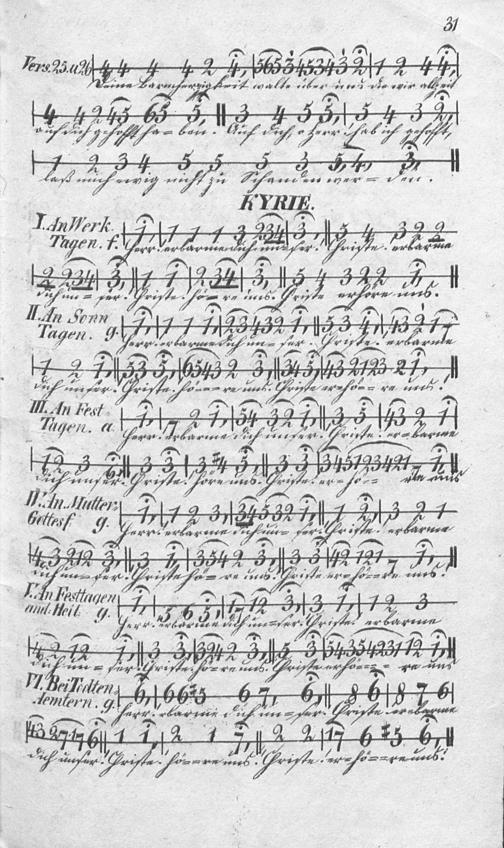 31
Vers. 25. u. 26 4 4 4 4 2 4, | 5 6 5 3 4 5 3 4 3 3 2 | 1 2 4 4,
Deine Barmherzigkeit walte über uns die wir allzeit
4 4 2 4 5 6 5 5, || 3 4 5 5, | 5 4 3 2,
auf dich gehofft ha= ben. Auf dich, o Herr! hab ich gehofft,
1 2 3 4 5 5 5 3 3, 4, 3, ||
laß mich ewig nicht zu Schanden wer= = den.
KYRIE.
I. An Werk 1, | 1 1 1 3 2 3 4 | 3, || 5 4 3 2 2
Tagen. f. Herr! erbarme dich un= ser. Christe. erbarme
2 2 3 4 | 3, || 1 1 | 2 3 4 | 3, || 5 4 3 2 2 1, ||
dich un= ser. Christe! hö= re uns. Christe erhöre uns.
II. An Sonn 1, | 1 1 1, | 2 3 4 3 2 1, || 5 3 4, | 4 3 2 1 7
Tagen. g. Herr! erbarme dich un= ser. Christe. erbarme
1 2 1, || 5 3 5, | 6 5 4 3 2 3, || 3 4 5, | 4 3 2 1 2 3 2 1, ||
dich unser. Christe. hö= = re uns. Christe erhö= = re uns!
III. An Fest 1, | 7 2 1, | 5 4 3 2 1, || 3 5 | 4 3 2 1
Tagen. a. Herr! erbarme dich unser. Christe. er= barme
1 2 3 6, || 3 3 | 3 #4 5, || 3 3 | 3 4 5 1 2 3 4 2 1 7 1, ||
dich unser. Christe! höre uns. Christe. er= hö= = re uns
IV. An Mutter= 1, | 1 2 3, | 3 4 5 3 2 1, || 1 2, | 3 2 1
Gottesf. g. Herr! erbarme dich un= ser. Christe. erbarme
4 3 2 1 2 3, || 3 1, | 3 5 4 2 3, || 3 3 | 4 2 1 2 1 7 1, ||
dich un= ser. Christe hö= = re uns. Christe er= hö= = re uns!
V. An Festtagen 1, | 5 6 5, | 1 7 1 2 3, | 3 1, | 1 2 3
and. Heil. g. Herr! erbarme dich un= ser. Christe. erbarme
4 2 1 2 1, || 3 3, | 3 2 4 2 3, || 5 3, | 5 4 3 5 4 2 3 1 2 1, ||
dich un= = ser. Christe. hö= re uns. Christe erhö= = = re uns
VI. Bei Todten= 6, | 6 6 #5 6 7, 6, || 8 6 | 8 7 6
Aemtern. g. Herr! erbarme dich un= ser. Christe. erbarme
4 3 2 1 7 1 7 6 || 1 1, | 2 1 7, || 2 2 | 1 7 6 #5 6, ||
dich unser. Christe. hö= = re uns. Christe! er= hö= = re uns!